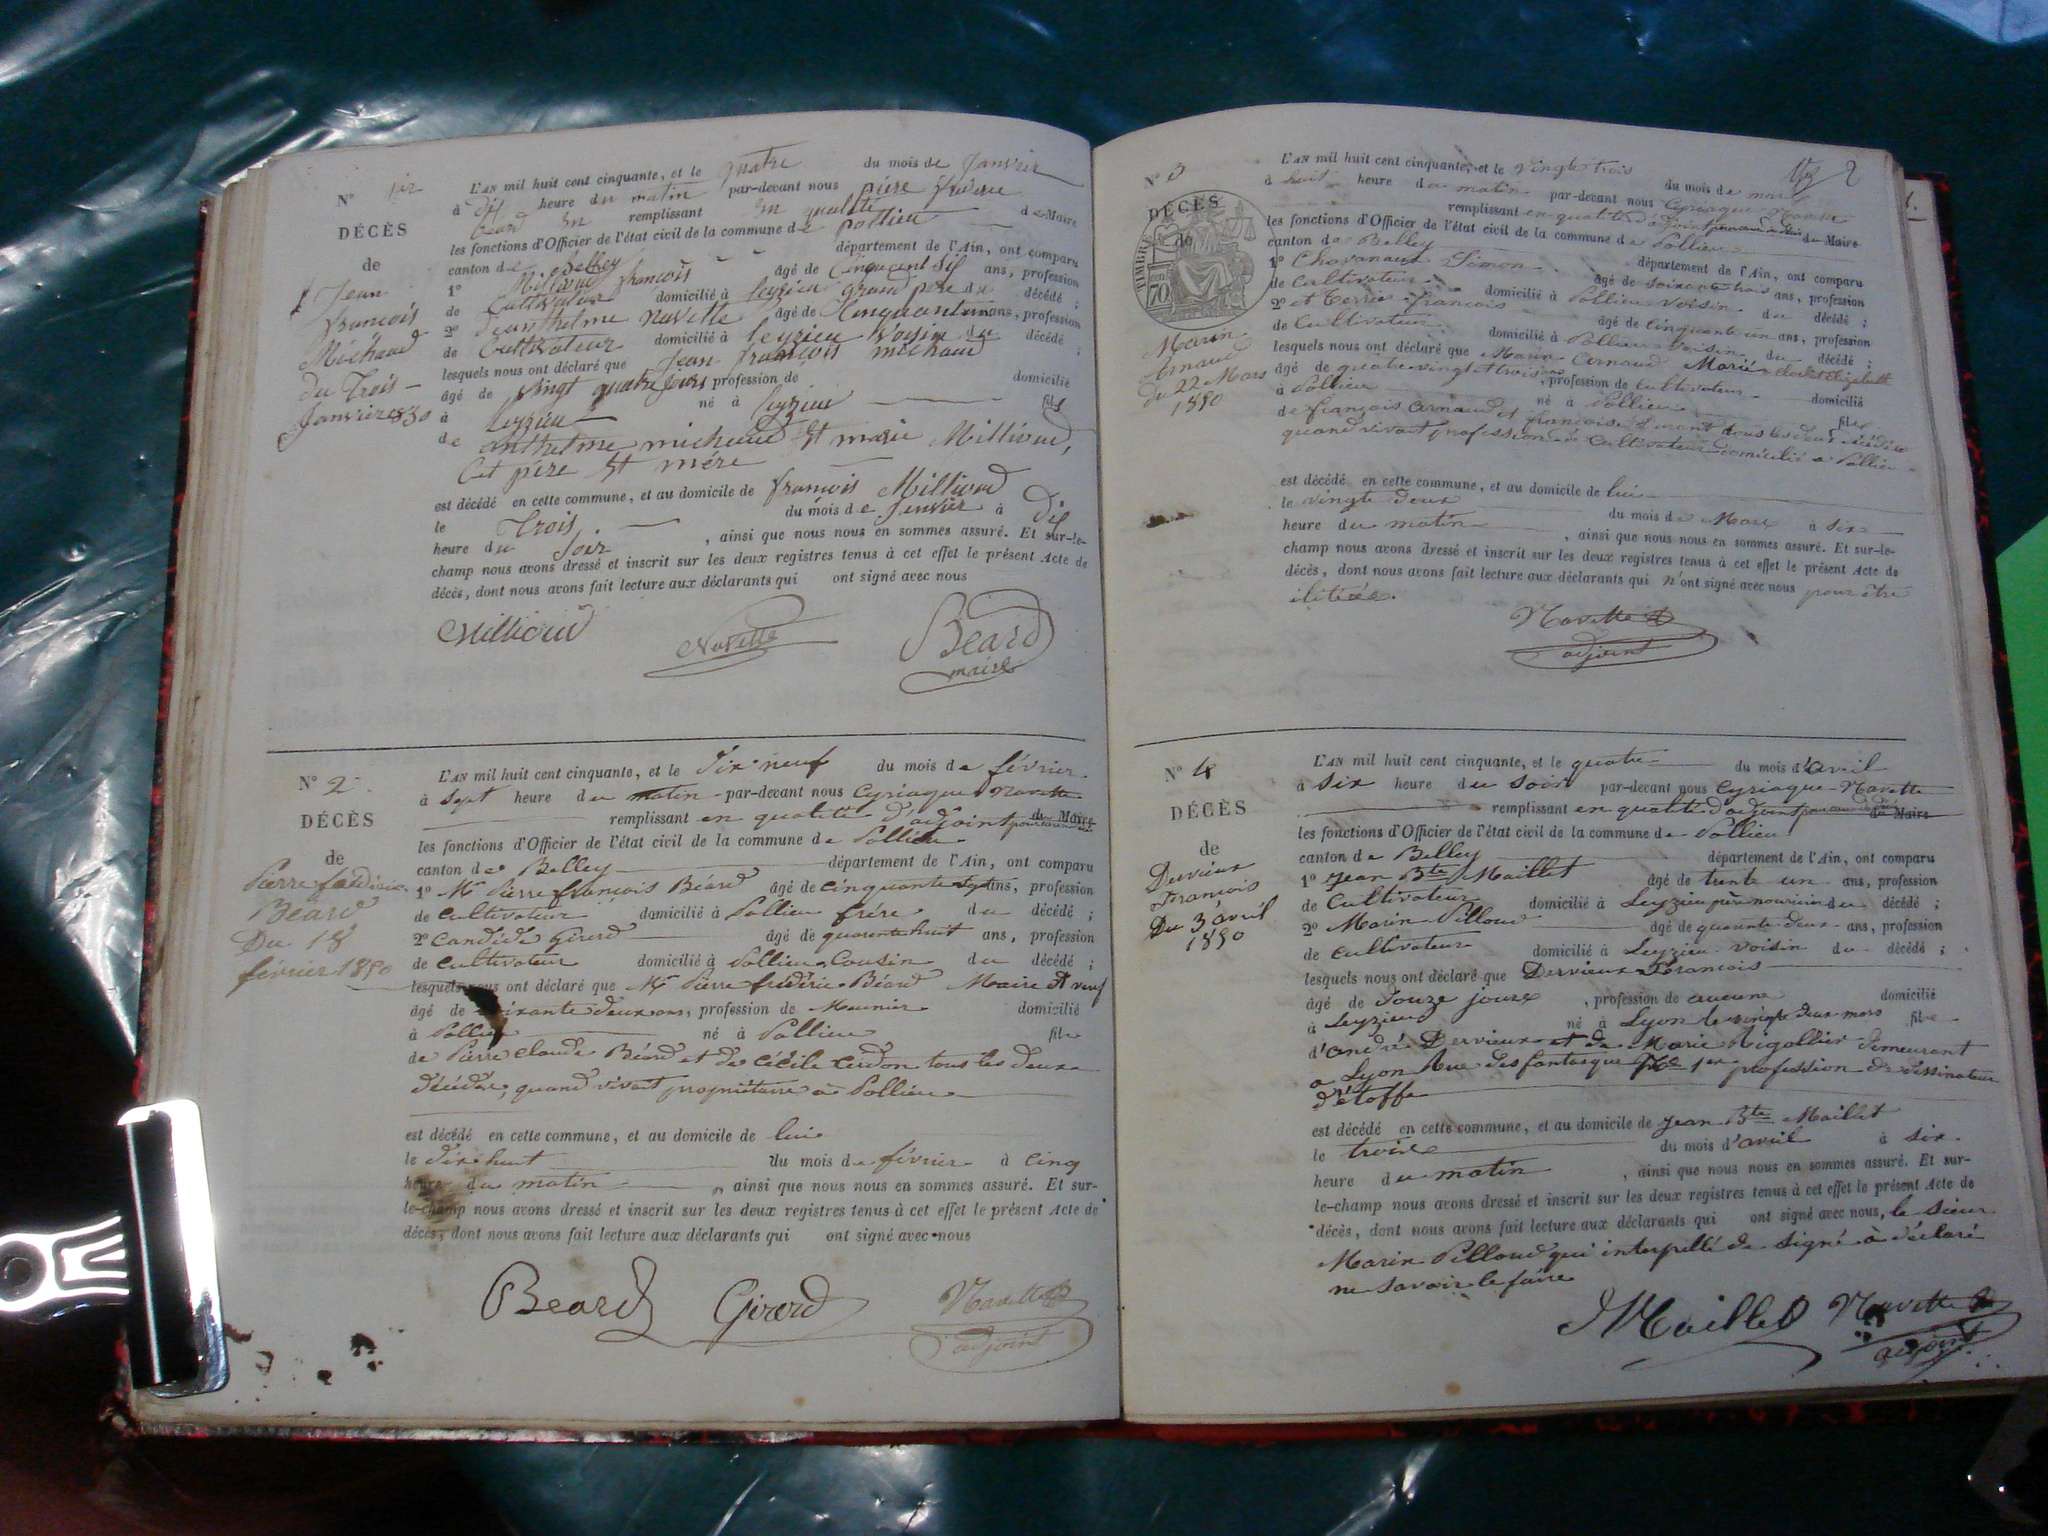 L'AN mil huit cent cinquante, et le quatre du mois de Janvier
N° 1er à dix heure du matin par-devant nous piere frideric
Beard en remplissant en qualité de Maire
DÉCÈS les fonctions d'Officier de l'état civil de la commune de pollieu
de canton de Belley département de l'Ain, ont comparu
Jean 1° Millioud françois âgé de Cinquent Sis ans, profession
françois de Cultivateur domicilié à Leyzieu grand père du décédé ;
Michaud 2° anthelme navette âgé de Cinquant ans, profession
du Trois de Cultivateur domicilié à Leyzieu voisin du décédé ;
Janvier 1850 lesquels nous ont déclaré que Jean françois michaud
âgé de vingt quatre jours profession de domicilié
à Leyzieu né à Leyzieu fils
de anthelme michaud Et marie Millioud,
Cet père Et mére
est décédé en cette commune, et au domicile de françois Millioud
le Trois du mois de Jenvier à Dis
heure du Soir , ainsi que nous nous en sommes assuré. Et sur-le-
champ nous avons dressé et inscrit sur les deux registres tenus à cet effet le présent Acte de
décès, dont nous avons fait lecture aux déclarants qui ont signé avec nous
Millioud Navette Beard
maire
N° 2 L'AN mil huit cent cinquante, et le dix neuf du mois de février
à sept heure du matin par-devant nous Cyriaque Navette
remplissant en qualité d'adjoint du Maire
DÉCÈS les fonctions d'Officier de l'état civil de la commune de Pollieu
de canton de Belley département de l'Ain, ont comparu
Pierre frédéric 1° Mr Pierre françois Béard âgé de cinquante sept ans, profession
Béard de Cultivateur domicilié à Pollieu frére du décédé ;
Du 18 2° Candide Girerd âgé de quarente huit ans, profession
février 1850 de Cultivateur domicilié à Pollieu Cousin du décédé ;
lesquels nous ont déclaré que Mr Pierre frédéric Béard Maire et veuf
âgé de soixante deux ans, profession de Meunier domicilié
à Pollieu né à Pollieu fils
de Pierre Claude Béard et de Cécile Cerdon tous les deux
décédés, quand vivait propriétaire à Pollieu
est décédé en cette commune, et au domicile de lui
le dix huit du mois de février à cinq
heure du matin , ainsi que nous nous en sommes assuré. Et sur-
le-champ nous avons dressé et inscrit sur les deux registres tenus à cet effet le présent Acte de
décès, dont nous avons fait lecture aux déclarants qui ont signé avec nous
Beard Girerd Navette
adjoint
2
N° 3 L'AN mil huit cent cinquante, et le vingt trois du mois de mars
à huit heure du matin par-devant nous Cyriaque Navette
DÉCÈS remplissant en qualité d'adjoint du Maire
les fonctions d'Officier de l'état civil de la commune de Pollieu
de canton de Belley département de l'Ain, ont comparu
TIMBRE 1° Chavanaux Simon âgé de soixante trois ans, profession
70 de Cultivateur domicilié à Pollieu voisin du décédé ;
2° et Terrier françois âgé de cinquante un ans, profession
de Cultivateur domicilié à Pollieu voisin du décédé ;
Marin lesquels nous ont déclaré que Marin Arnaud
Arnaud âgé de quatre vingt trois ans , profession de Cultivateur domicilié
du 22 Mars à Pollieu né à Pollieu fils
1850 de françois Arnaud et françoise tous les deux décédés
quand vivait profession de Cultivateur domicilié à Pollieu
est décédé en cette commune, et au domicile de lui
le vingte deux du mois de Mars à six
heure du matin , ainsi que nous nous en sommes assuré. Et sur-le-
champ nous avons dressé et inscrit sur les deux registres tenus à cet effet le présent Acte de
décès, dont nous avons fait lecture aux déclarants qui n'ont signé avec nous pour être
Navette
adjoint
N° 4 L'AN mil huit cent cinquante, et le quatre du mois d'avril
à six heure du soir par-devant nous Cyriaque Navette
DÉCÈS remplissant en qualité d'adjoint du Maire
les fonctions d'Officier de l'état civil de la commune de Pollieu
de canton de Belley département de l'Ain, ont comparu
Dervieux 1° Jean Bte Maillet âgé de trente un ans, profession
François de Cultivateur domicilié à Leyzieu père nouricier du décédé ;
Du 3 avril 2° Marin Pilloud âgé de quarante deux ans, profession
1850 de Cultivateur domicilié à Leyzieu voisin du décédé ;
lesquels nous ont déclaré que Dervieux François
âgé de Douze jours , profession de aucune domicilié
à Leyzieu né à Lyon le vingte deux mars fils
d'andré Dervieux et de Marie Rigollier demeurent
a Lyon Rue des fantasque 1er profession de dessinateur
d'étoffe
est décédé en cette commune, et au domicile de Jean Bte Maillet
le trois du mois d'avril à six
heure du matin , ainsi que nous nous en sommes assuré. Et sur-
le-champ nous avons dressé et inscrit sur les deux registres tenus à cet effet le présent Acte de
décès, dont nous avons fait lecture aux déclarants qui ont signé avec nous, le sieur
Marin Pilloud qui interpellé de signé à déclaré
ne savoir le faire
Maillet Navette
adjoint